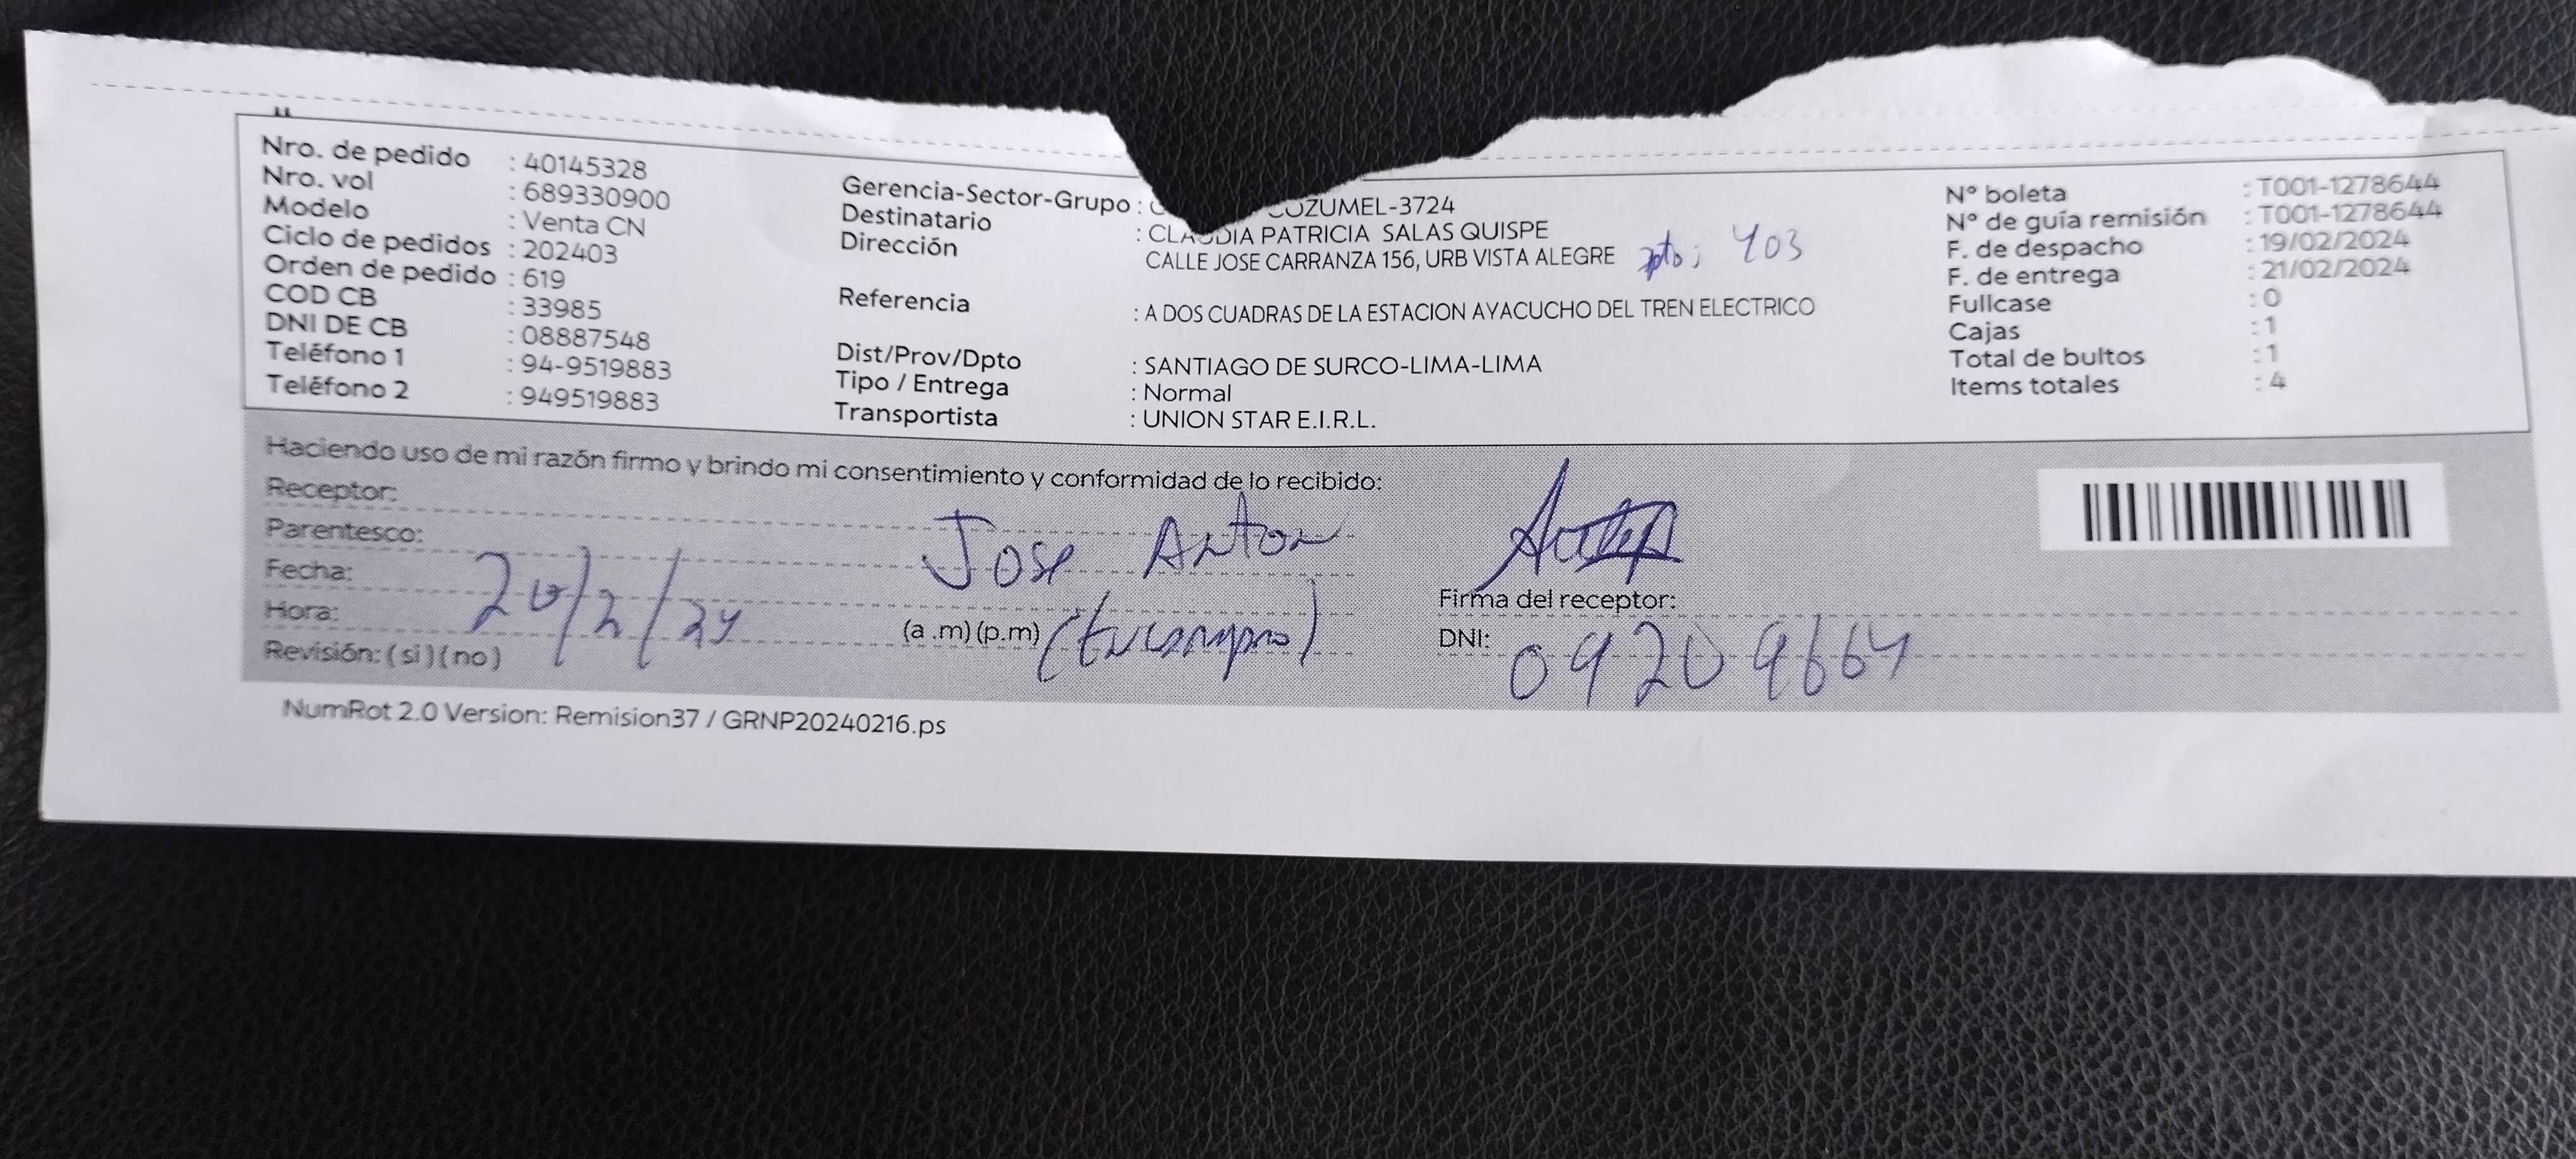 Nro. de pedido : 40145328
Nro. vol : 689330900
Modelo : Venta CN
Ciclo de pedidos : 202403
Orden de pedido : 619
COD CB : 33985
DNI DE CB : 08887548
Teléfono 1 : 94-9519883
Teléfono 2 : 949519883
Gerencia-Sector-Grupo : COZUMEL-3724
Destinatario : CLAUDIA PATRICIA SALAS QUISPE
Dirección CALLE JOSE CARRANZA 156, URB VISTA ALEGRE dpto: 403
Referencia : A DOS CUADRAS DE LA ESTACION AYACUCHO DEL TREN ELECTRICO
Dist/Prov/Dpto : SANTIAGO DE SURCO-LIMA-LIMA
Tipo / Entrega : Normal
Transportista : UNION STAR E.I.R.L.
N° boleta : T001-1278644
N° de guía remisión : T001-1278644
F. de despacho : 19/02/2024
F. de entrega : 21/02/2024
Fullcase : 0
Cajas : 1
Total de bultos : 1
Items totales : 4
Haciendo uso de mi razón firmo y brindo mi consentimiento y conformidad de lo recibido:
Receptor:
Parentesco: Jose Anton
Fecha: 20/2/24
Hora: (a .m) (p.m)
Revisión: ( si ) ( no )
Firma del receptor:
DNI: 09209664
NumRot 2.0 Version: Remision37 / GRNP20240216.ps